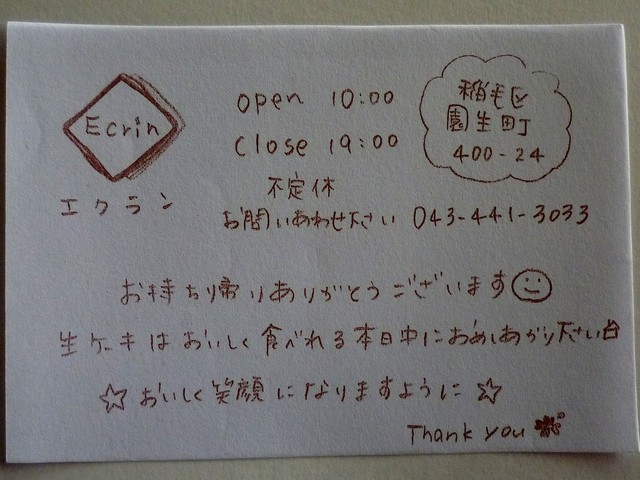 Ecrin
エクラン
open 10:00
close 19:00
不定休
お問いあわせ下さい 043-441-3033
稲毛区
園生町
400-24
お持ち帰りありがとうございます
生ケーキはおいしく食べれる本日中におめしあがり下さい
☆おいしく笑顔になりますように☆
Thank you